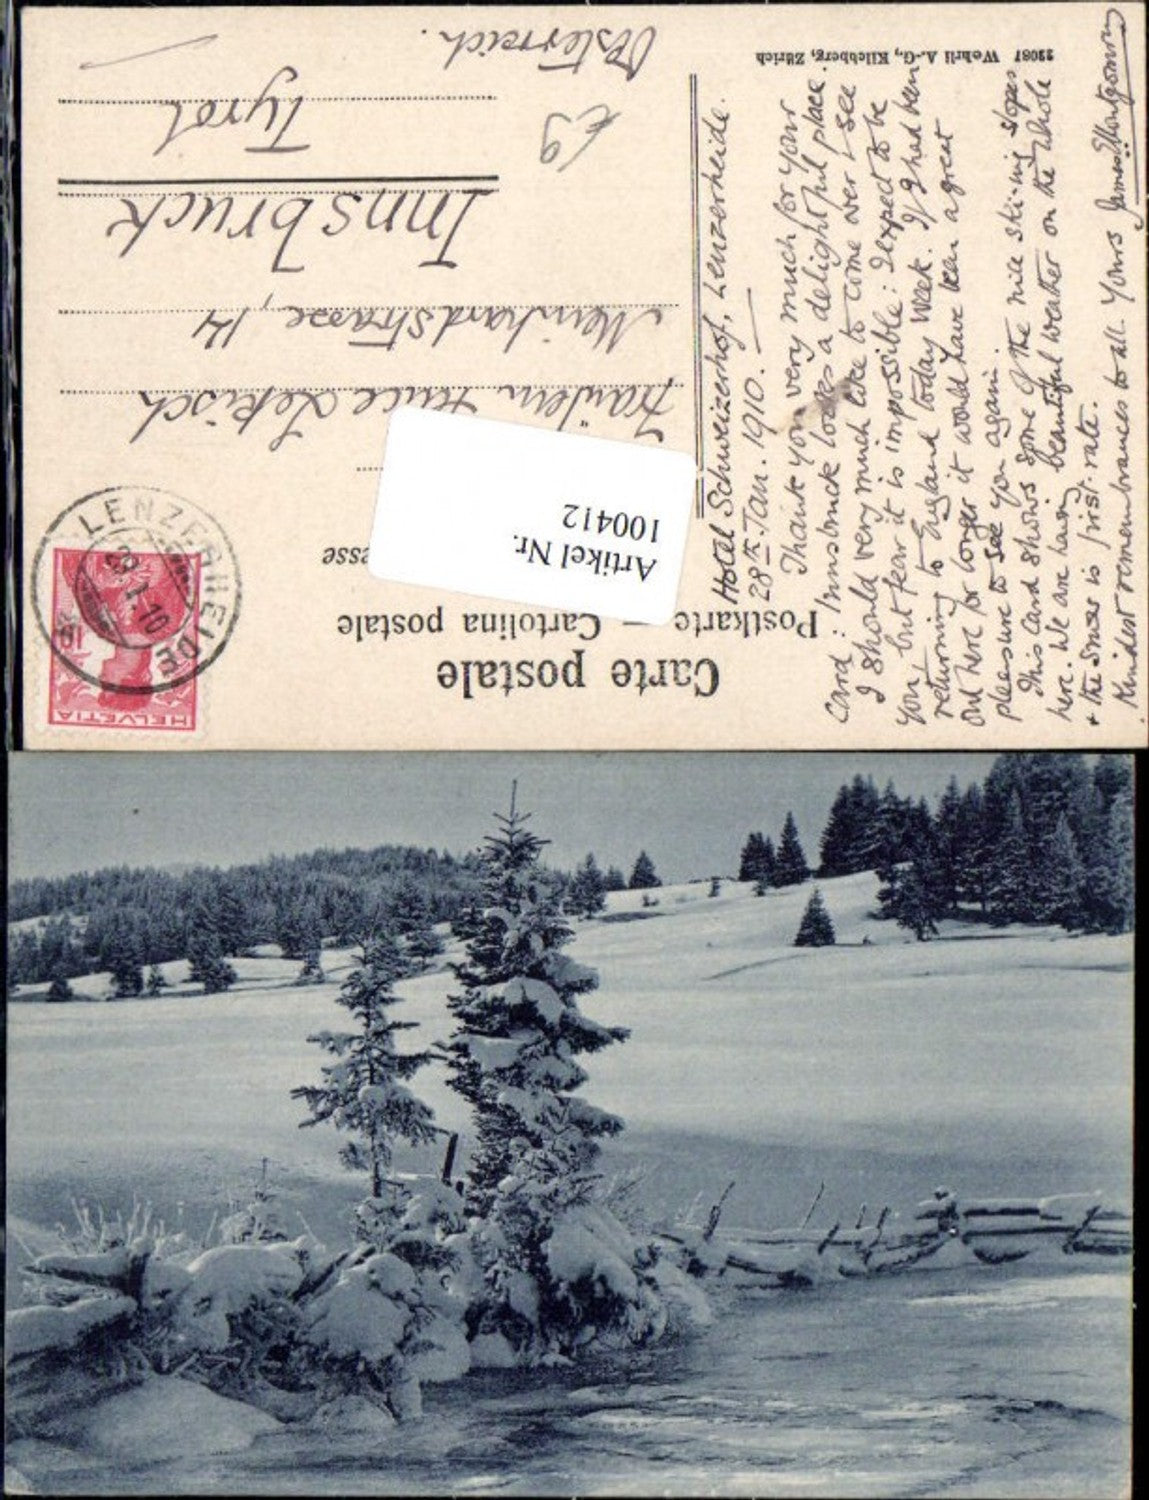 Carte postale
Postkarte — Cartolina postale
esse
Artikel Nr.
100412
HELVETIA
10
LENZERHEIDE
29.I.10
Fräulein Lekisch
Meinhardstrasse, 14
Innsbruck
Tyrol
Österreich.
£9
22081 Wehrli A.-G., Kilchberg, Zürich
Hotel Schweizerhof, Lenzerheide.
28th Jan. 1910.
Thank you very much for your
card: Innsbruck looks a delightful place.
I should very much like to come over & see
you, but fear it is impossible: I expect to be
returning to England today week. If I had been
out here for longer it would have been a great
pleasure to see you again.
This card shows some of the nice ski-ing slopes
here. We are having beautiful weather on the whole
+ the snow is first-rate.
Kindest remembrances to all. Yours James Montgomery